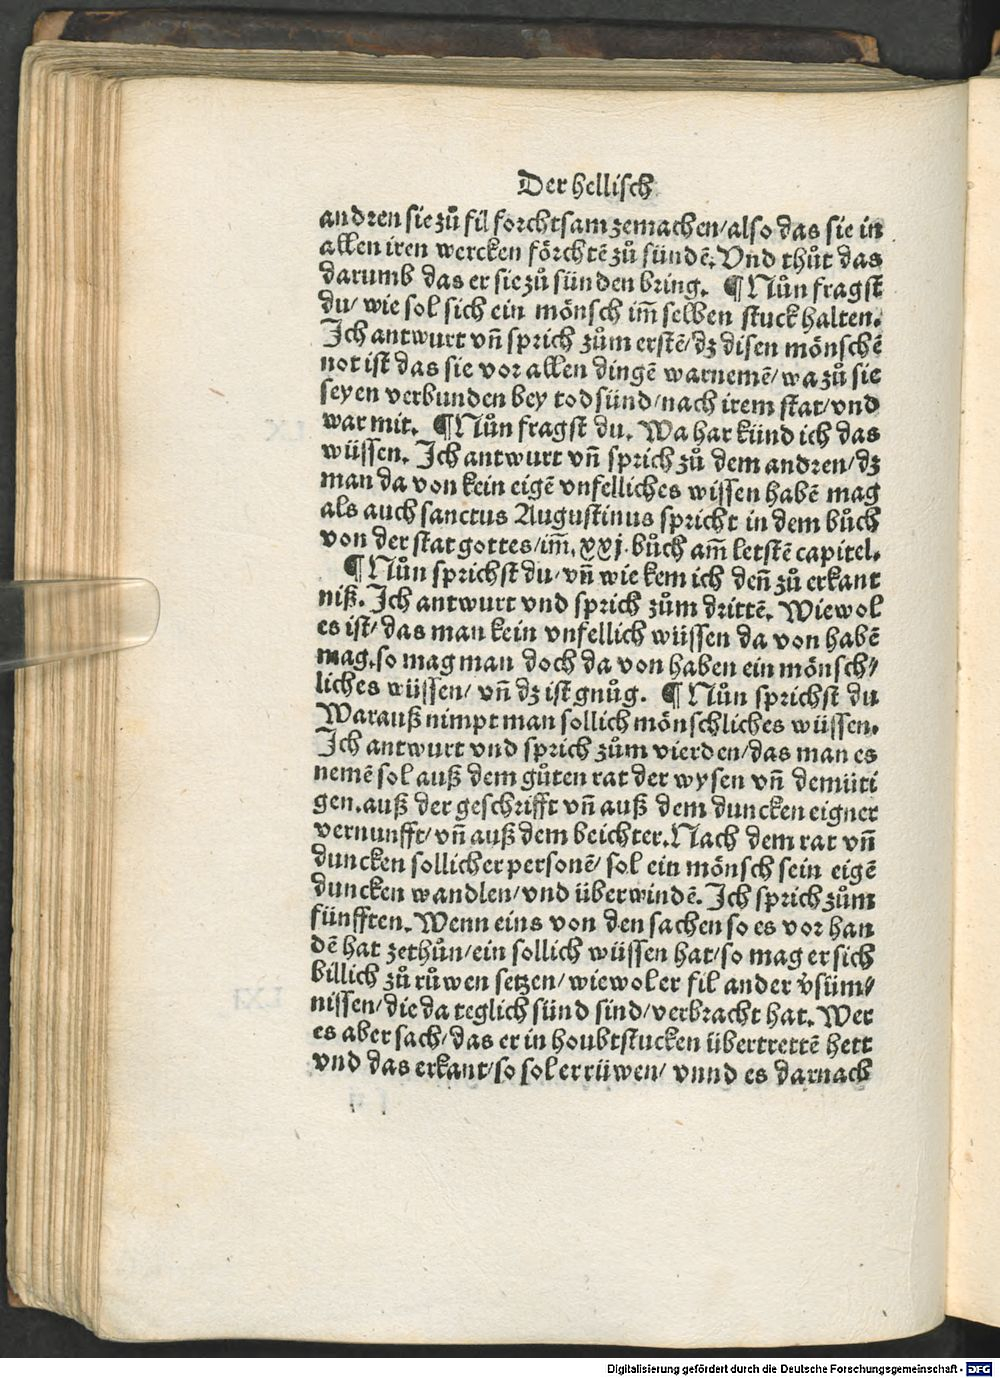 Der hellisch
andren sie zů fil forchtsam zemachen/also das sie in
allen iren wercken förchtē zů sündē. Vnd thůt das
darumb das er sie zů sünden bring. ¶ Nůn fragst
du/ wie sol sich ein mönsch im̄ selben stuck halten.
Ich antwurt vn̄ sprich zům erstē/dz disen mönschē
not ist das sie vor allen dingē warnemē/wa zů sie
seyen verbunden bey todsünd/nach irem stat/vnd
war mit. ¶ Nůn fragst du. Wa har künd ich das
wüssen. Ich antwurt vn̄ sprich zů dem andren/dz
man da von kein eigē vnfelliches wissen habē mag
als auch sanctus Augustinus spricht in dem bůch
von der stat gottes/im̄.xxj.bůch am̄ letstē capitel.
¶ Nůn sprichst du/vn̄ wie kem ich den̄ zů erkant
niß. Ich antwurt vnd sprich zům drittē. Wiewol
es ist/das man kein vnfellich wüssen da von habē
mag.so mag man doch da von haben ein mönsch⸗
liches wüssen/ vn̄ dz ist gnůg. ¶ Nůn sprichst du
Warauß nimpt man sollich mönschliches wüssen.
Ich antwurt vnd sprich zům vierden/das man es
nemē sol auß dem gůten rat der wysen vn̄ demüti
gen.auß der geschrifft vn̄ auß dem duncken eigner
vernunfft/vn̄ auß dem beichter. Nach dem rat vn̄
duncken sollicher personē/sol ein mönsch sein eigē
duncken wandlen/vnd überwindē. Ich sprich zům
fünfften. Wenn eins von den sachen so es vor han
dē hat zethůn/ein sollich wüssen hat/so mag er sich
billich zů růwen setzen/wiewol er fil ander v̓süm⸗
nissen/die da teglich sünd sind/verbracht hat. Wer
es aber sach/das er in houbtstucken übertrettē hett
vnd das erkant/so sol er rüwen/ vnnd es darnach
Digitalisierung gefördert durch die Deutsche Forschungsgemeinschaft - DFG